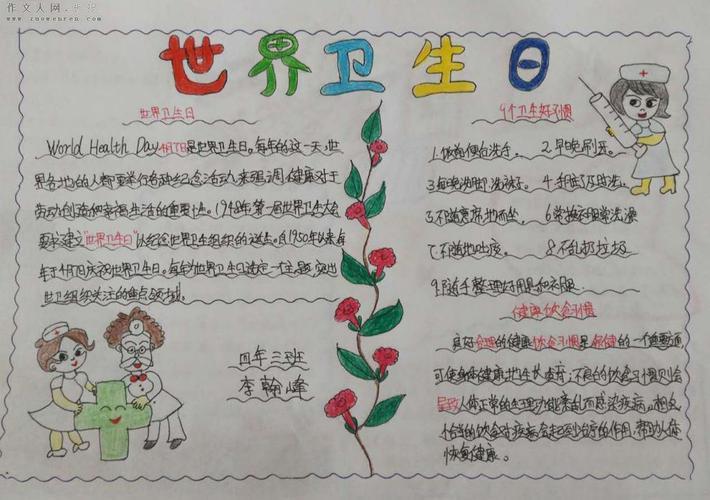 作文人网
www.zuowenren.com
世界卫生日
世界卫生日
World Health Day 4月7日是世界卫生日。每年的这一天,世
界各地的人都要举行各种纪念活动,来强调健康对于
劳动创造和幸福生活的重要性。1948年第一届世界卫生大会
要求建立"世界卫生日"以纪念世界卫生组织的诞生。自1950年以来每
年于4月7日庆祝世界卫生日。每年为世界卫生日选定一个主题,突出
世卫组织关注的重点领域。
四年三班
李翰峰
9个卫生好习惯
1.饭前便后洗手。 2.早晚刷牙。
3.每晚洗脚、洗袜子。 4.手脏了及时洗。
5.不随意席地而坐。 6.常换衣服常洗澡
7.不随地吐痰。 8.不乱扔垃圾
9.随手整理好用具和衣服
健康饮食习惯
良好合理的健康饮食习惯是保健的一个重要方面
可使身体健康地生长、发育;不良的饮食习惯则会
导致人体正常的生理功能紊乱而感染疾病。相反
恰当的饮食对疾病会起到治疗的作用,帮助人体
恢复健康。